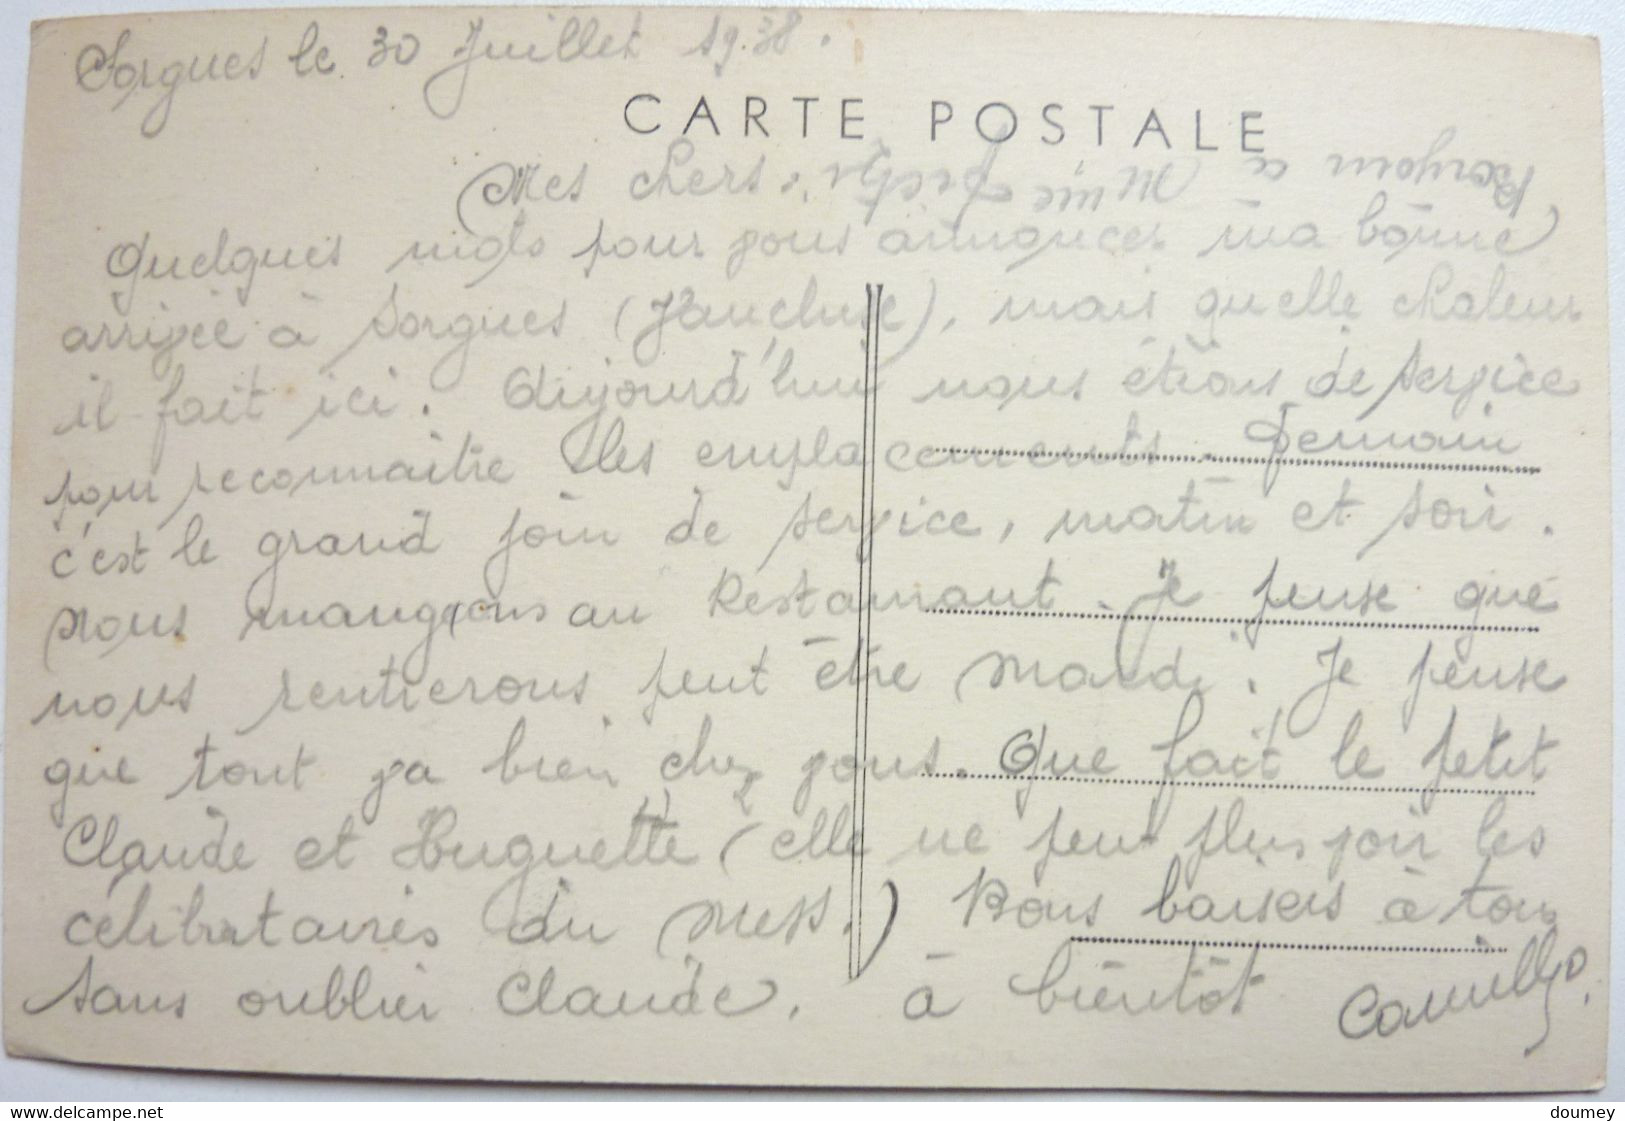 Sorgues le 30 Juillet 1938.
CARTE POSTALE
Mes chers.
Bonjour à Mme
Quelques mots pour vous annoncer ma bonne
arrivée à Sorgues (Vaucluse), mais quelle chaleur
il fait ici. Aujourd'hui nous étions de service
pour reconnaitre les emplacements. Demain
c'est le grand jour de service, matin et soir.
Nous mangeons au Restaurant. Je pense que
nous rentrerons peut être Mardi. Je pense
que tout va bien chez vous. Que fait le petit
Claude et Huguette (elle ne peut plus voir les
célibataires du Mess.) Bons baisers à tous
sans oublier Claude. à bientôt
delcampe.net
doumey